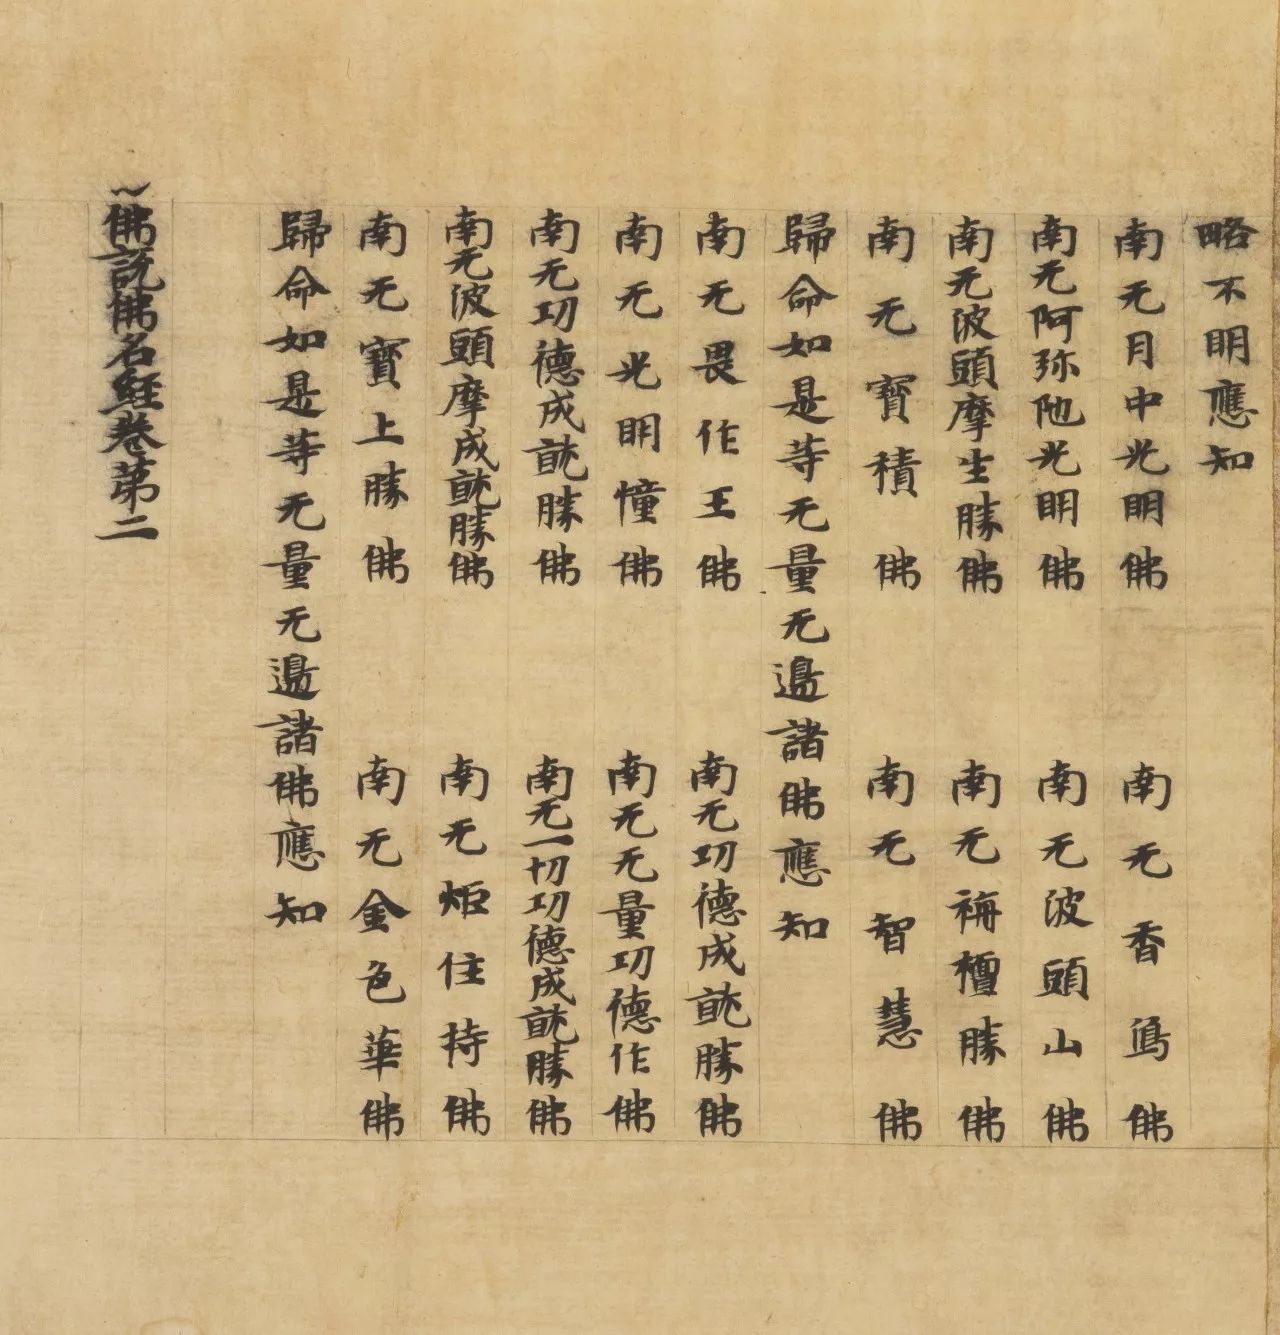 略不明應知
南无月中光明佛 南无香鳥佛
南无阿弥陁光明佛 南无波頭山佛
南无波頭摩生勝佛 南无栴檀勝佛
南无寶積佛 南无智慧佛
歸命如是等无量无邊諸佛應知
南无畏作王佛 南无功德成就勝佛
南无光明幢佛 南无无量功德作佛
南无功德成就勝佛 南无一切功德成就勝佛
南无波頭摩成就勝佛 南无炬住持佛
南无寶上勝佛 南无金色華佛
歸命如是等无量无邊諸佛應知
佛說佛名經卷第二